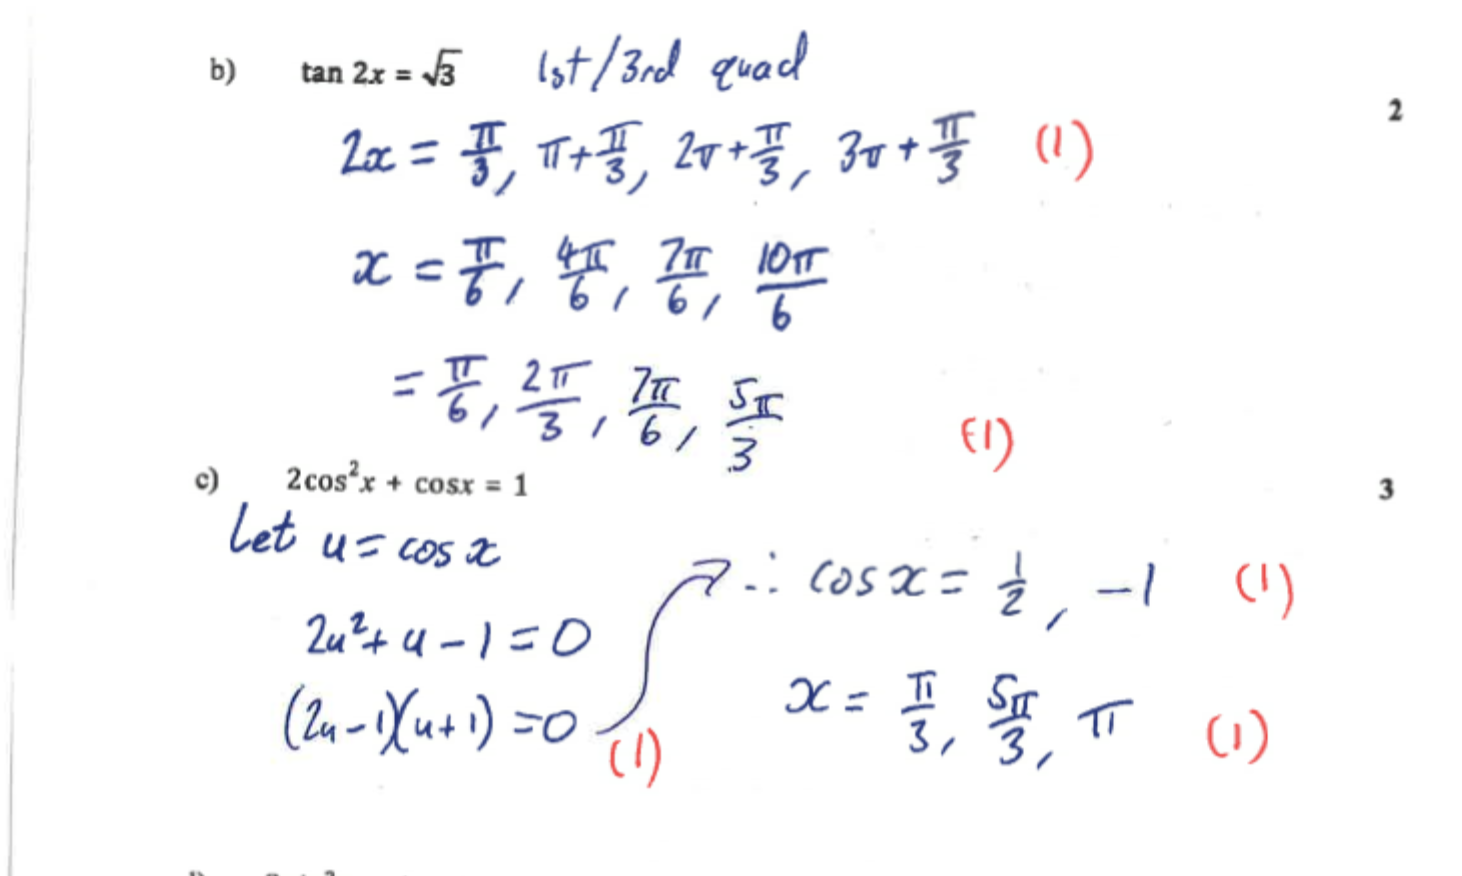 b) tan 2x = √3 1st/3rd quad
2
2x = π/3, π+π/3, 2π+π/3, 3π+π/3 (1)
x = π/6, 4π/6, 7π/6, 10π/6
= π/6, 2π/3, 7π/6, 5π/3 (1)
c) 2cos²x + cosx = 1
3
Let u = cos x
2u²+ u - 1 = 0
(2u-1)(u+1) = 0 (1)
∴ cos x = 1/2, -1 (1)
x = π/3, 5π/3, π (1)